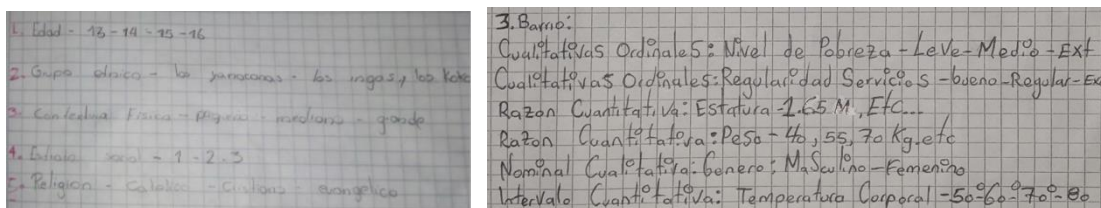 1. Edad - 13 - 14 - 15 - 16
2. Grupo - los yanaconas - los ingas, los
3. Contextura Fisica - - mediano - grande
4. - 1 - 2 - 3
5. Religion - Catolico - - evangelico
3. Barrio:
Cualitativas Ordinales: Nivel de Pobreza - Leve - Medio - Ext
Cualitativas Ordinales: Regularidad Servicios - bueno - Regular - Ex
Razon Cuantitativa: Estatura - 1.65 M, Etc...
Razon Cuantitativa: Peso - 40, 55, 70 Kg. etc
Nominal Cualitativa: Genero: Masculino - Femenino
Intervalo Cuantitativa: Temperatura Corporal - 50° - 60° - 70° - 80